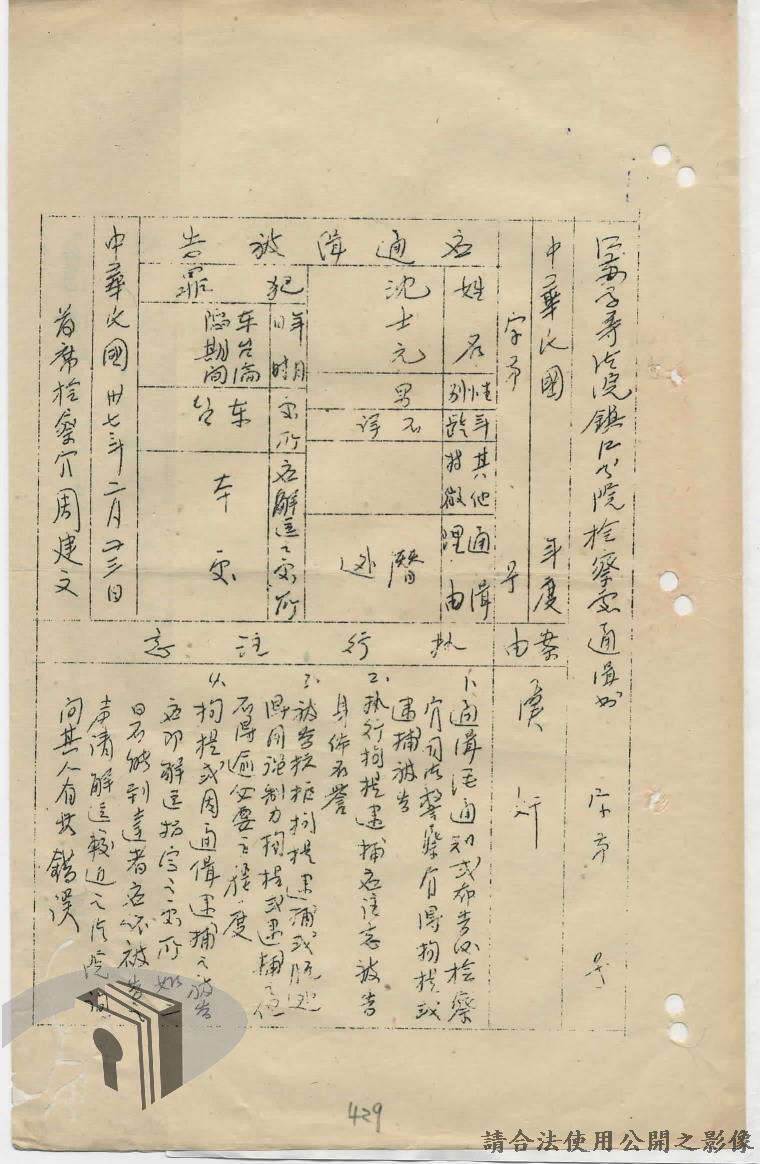 江蘇高等法院鎮江分院檢察處通緝書 字第 號
中華民國 年度
字第 號
案由 漢奸
應通緝被告
姓名 沈士元
性別 男
年齡 不詳
其他特徵
通緝理由 潛逃
犯罪
年月日時 東台淪陷期間
处所 東台
应解送之处所 本处
执行注意
1、通緝經通知或布告後檢察官司法警察官得拘提或逮捕被告
2、执行拘提逮捕应注意被告身体名誉
3、被告抗拒拘提逮捕或脱逃得用强制力拘提或逮捕之但不得逾必要之程度
4、拘提或因通緝逮捕之被告应即解送指定之处所如三日不能到達者应依被告之声请解送較近之法院訊问其人有無錯误
中華民國卅七年二月廿三日
首席检察官周建文
429
請合法使用公開之影像